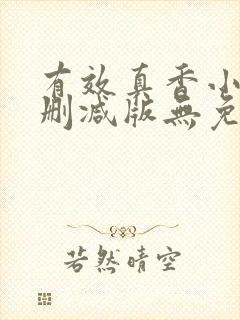 有效真香小
删减版無免
若然晴空